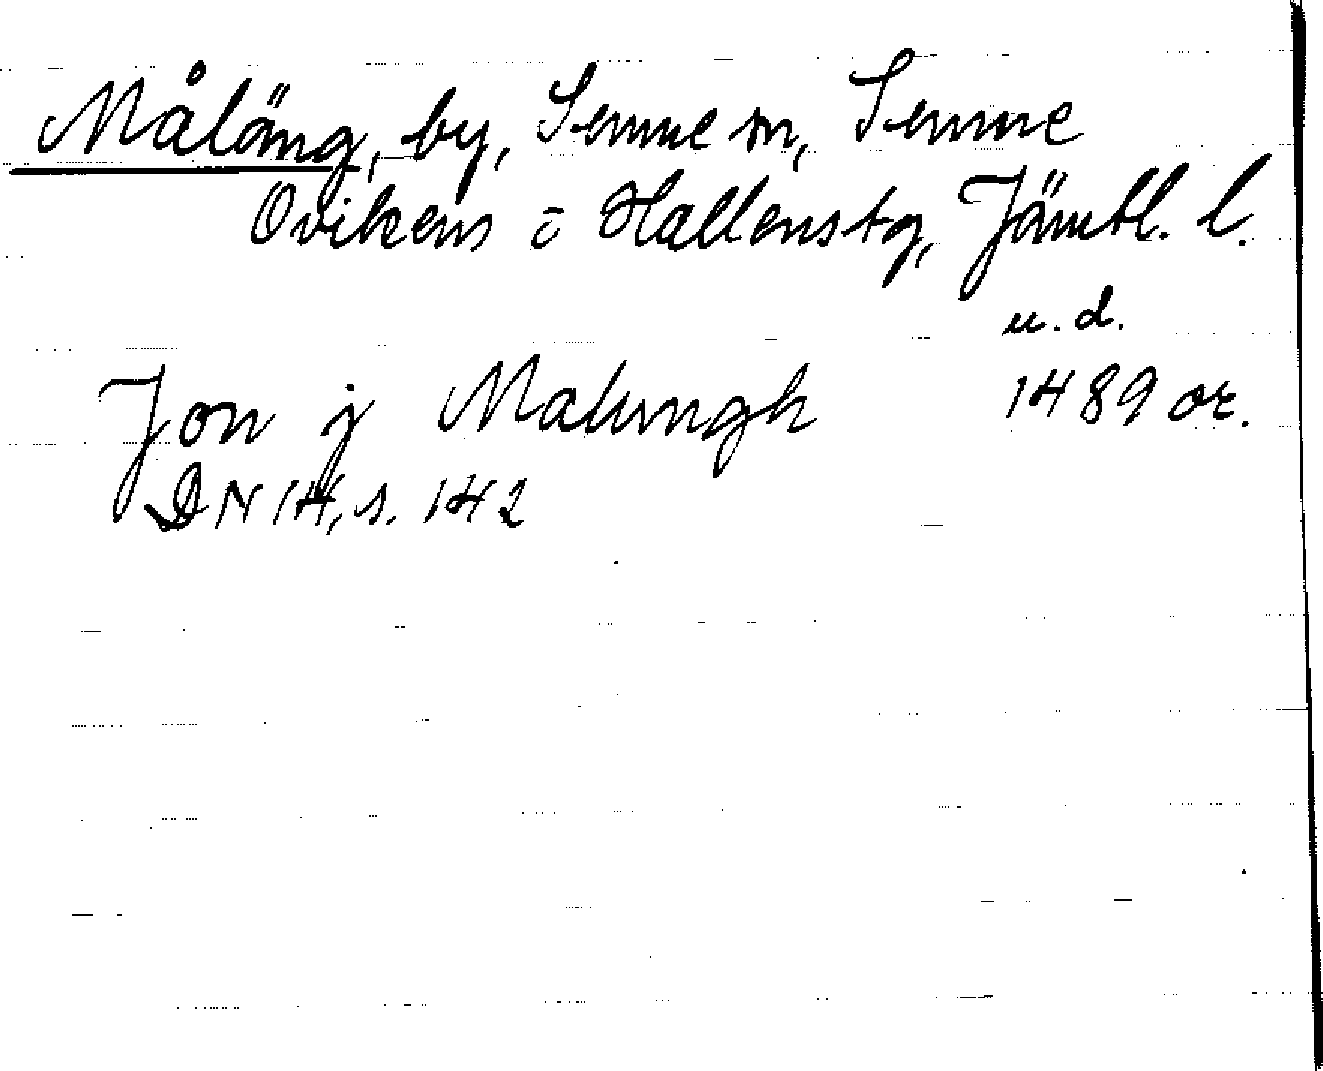 Måläng, by, Sunne sn, Sunne
Ovikens o Hallens tg, Jämtl. l.
u. d.
Jon j Malungh 1489 or.
DN 14, s. 142